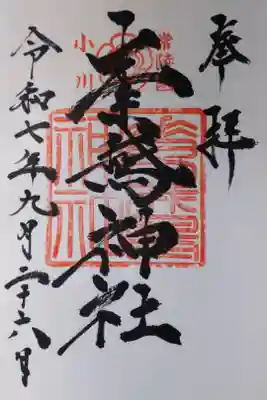 奉拝
常陸国
小川
素鵞神社
令和七年九月二十六日